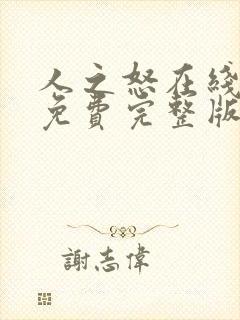 人之怒在线
免费完整版
謝志偉